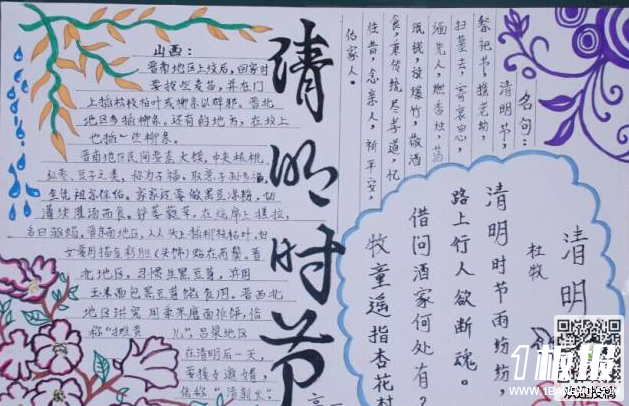 清明时节
山西:
晋南地区上坟后,回家时
要拔些麦苗,并在门
上插松枝柏叶或柳条以辟邪。晋北
地区多插柳条。还有的地方,在坟上
也插一些柳条。
晋南地区民间要蒸大馍,中夹核桃、
红枣、豆子之类,称为子福。取意子孙多福,
全凭祖宗保佑。家家还要做黑豆凉粉,切
薄块灌汤而食。铺
在炕席上搓拉,
名曰驱蝎。晋东南地区,人人头上插柳枝枯叶,妇
女要用描金彩胜(头饰)贴在两鬓。晋
北地区,习惯生黑豆芽,并用
玉米面包黑豆芽馅食用。晋西北
地区讲究用黍米磨面作饼,俗
称“摊黄儿”。吕梁地区
在清明后一天,
要接女邀婿,
俗称“清新火”。
名句:
清明节,
祭祀节,携老幼,
扫墓去,寄哀思,
酒先人,燃香烛,
纸钱,放爆竹,敬酒
食,重传统,尽孝道,忆
往昔,念亲人,祈平安,
佑家人。
清明
杜牧
清明时节雨纷纷,
路上行人欲断魂。
借问酒家何处有?
牧童遥指杏花村
1板报